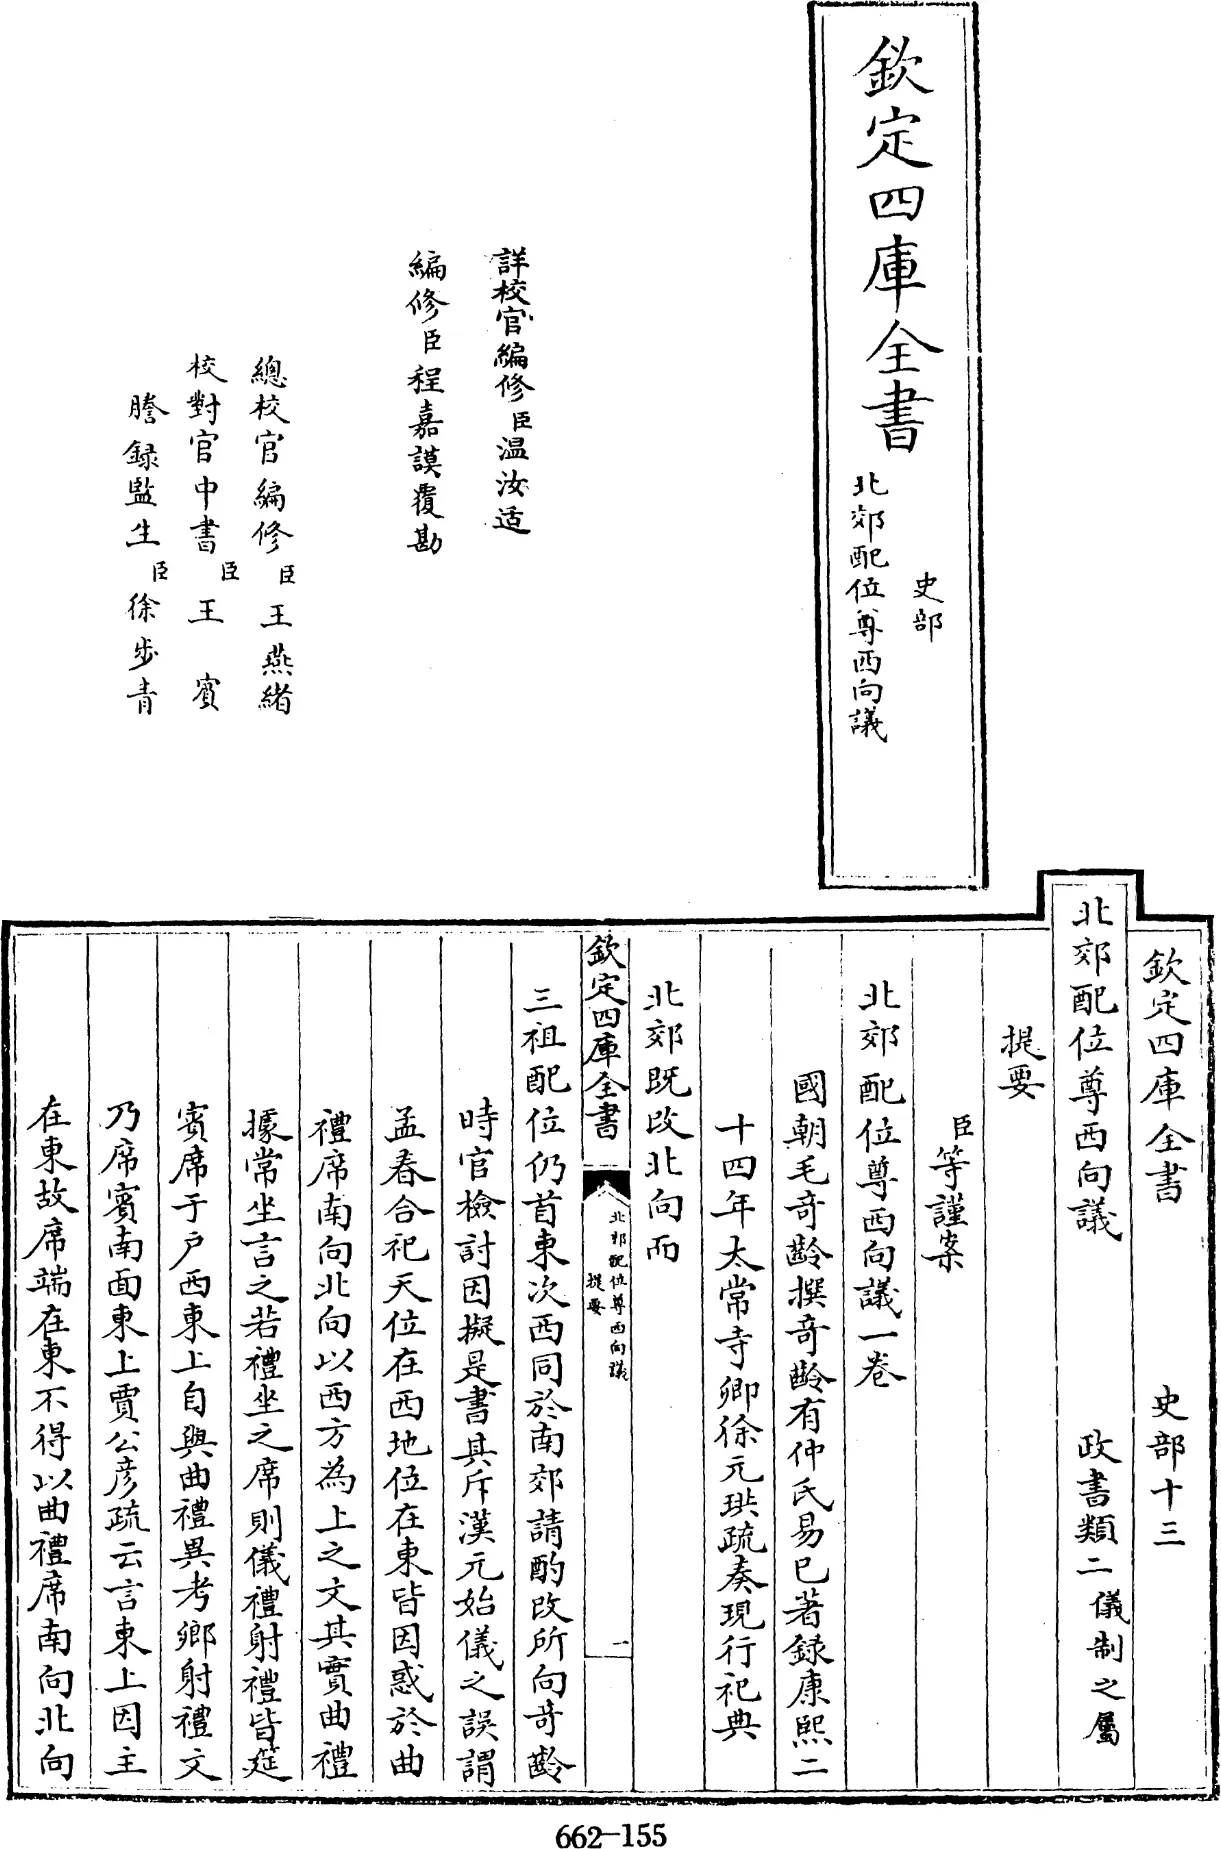 欽定四庫全書
史部
北郊配位尊西向議
詳校官編修臣温汝适
編修臣程嘉謨覆勘
總校官編修臣王燕緒
校對官中書臣王賓
謄録監生臣徐步青
欽定四庫全書 史部十三
北郊配位尊西向議 政書類二儀制之屬
提要
臣等謹案
北郊配位尊西向議一卷
國朝毛奇齡撰奇齡有仲氏易已著録康熙二
十四年太常寺卿徐元珙疏奏現行祀典
北郊既改北向而
欽定四庫全書
北郊配位尊西向議
提要
一
三祖配位仍首東次西同於南郊請酌改所向奇齡
時官檢討因擬是書其斥漢元始儀之誤謂
孟春合祀天位在西地位在東皆因惑於曲
禮席南向北向以西方為上之文其實曲禮
據常坐言之若禮坐之席則儀禮射禮皆筵
賓席于户西東上自與曲禮異考鄉射禮文
乃席賓南面東上賈公彦疏云言東上因主
在東故席端在東不得以曲禮席南向北向
662-155